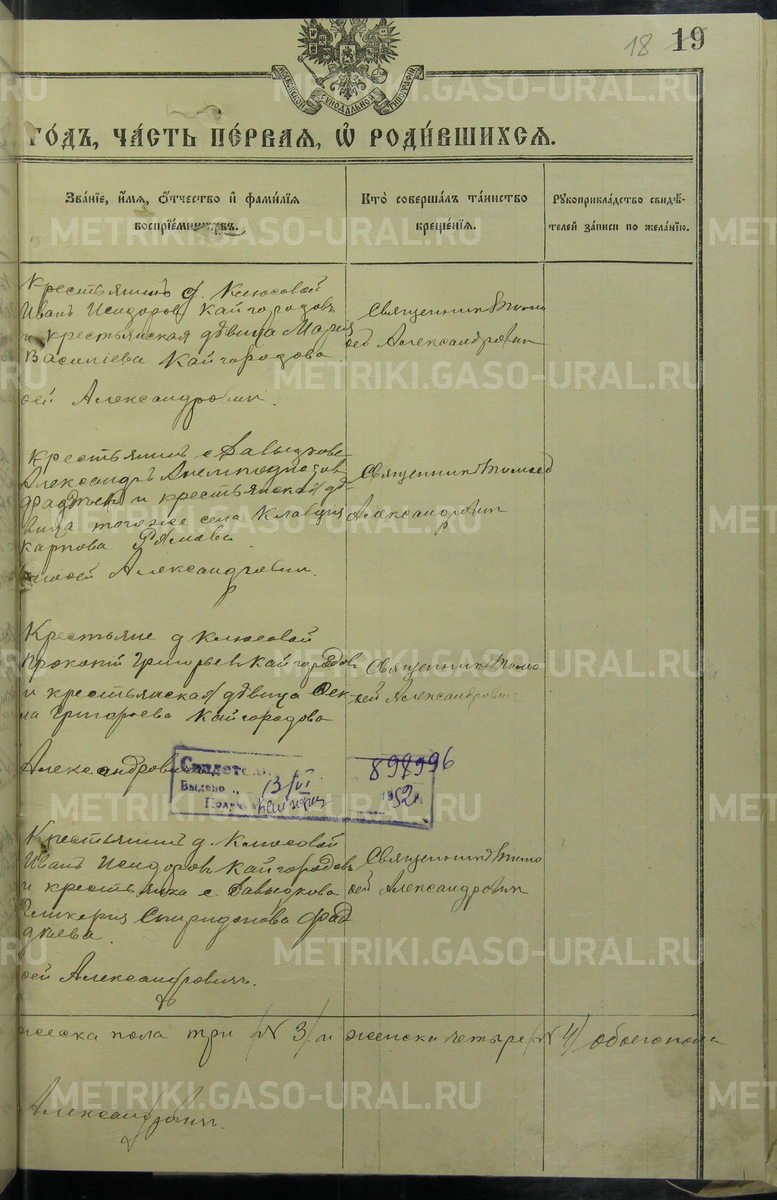 18 19
МОСКОВСКОЙ СѴНОДАЛЬНОЙ ТИПОГРАФІИ
ГОДЪ, ЧАСТЬ ПЕРВАЯ, Ѡ РОДИВШИХСЯ.
Званіе, имя, отчество и фамилія воспріемниковъ.
Кто совершалъ таинство крещенія.
Рукоприкладство свидѣтелей записи по желанію.
Крестьянинъ д. Клюсовой
Иванъ Исидоровъ Кайгородовъ
и крестьянская дѣвица Марія
Васильева Кайгородова
Священникъ Тимо
ѳей Александровичъ
ѳей Александровичъ.
Крестьянинъ с. Давыдкова
Александръ
и крестьянская дѣ
вица того же села Клавдия
Карпова
Священникъ Тимоѳей
Александровичъ
Тимоѳей Александровичъ.
Крестьяне д. Клюсовой
Прокопій Григорьевъ Кайгородовъ
и крестьянская дѣвица Ѳек
ла Григорьева Кайгородова
Священникъ Тимо
ѳей Александровичъ
Александровичъ
Свидетел
Выдано „ 13/VI
Получ
898996
1952 г.
Крестьянинъ д. Клюсовой
Иванъ Исидоровъ Кайгородовъ
и крестьянка с. Давыдкова
Гликерия Спиридонова Фад
дѣева.
Священникъ Тимо
ѳей Александровичъ
ѳей Александровичъ.
жеска пола три (№ 3) и женска четыре (№ 4) обоего пола
Александровичъ.
METRIKI.GASO-URAL.RU